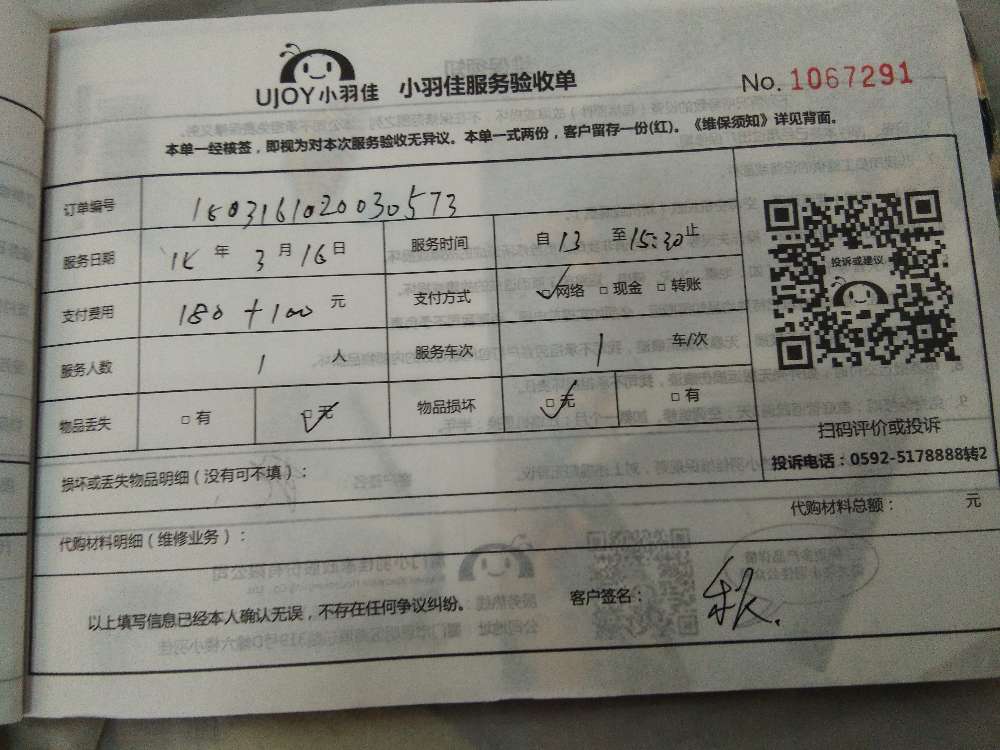 UJOY小羽佳 小羽佳服务验收单 No. 1067291
本单一经核签，即视为对本次服务验收无异议。本单一式两份，客户留存一份(红)。《维保须知》详见背面。
订单编号 1803161020030573
服务日期 18 年 3 月 16 日 服务时间 自 13 至 15:30 止
支付费用 180 + 100 元 支付方式 ☑网络 □现金 □转账
服务人数 1 人 服务车次 1 车/次
物品丢失 □有 ☑无 物品损坏 ☑无 □有
投诉或建议
扫码评价或投诉
投诉电话：0592-5178888转2
损坏或丢失物品明细（没有可不填）：
代购材料明细（维修业务）： 代购材料总额： 元
以上填写信息已经本人确认无误，不存在任何争议纠纷。 客户签名：